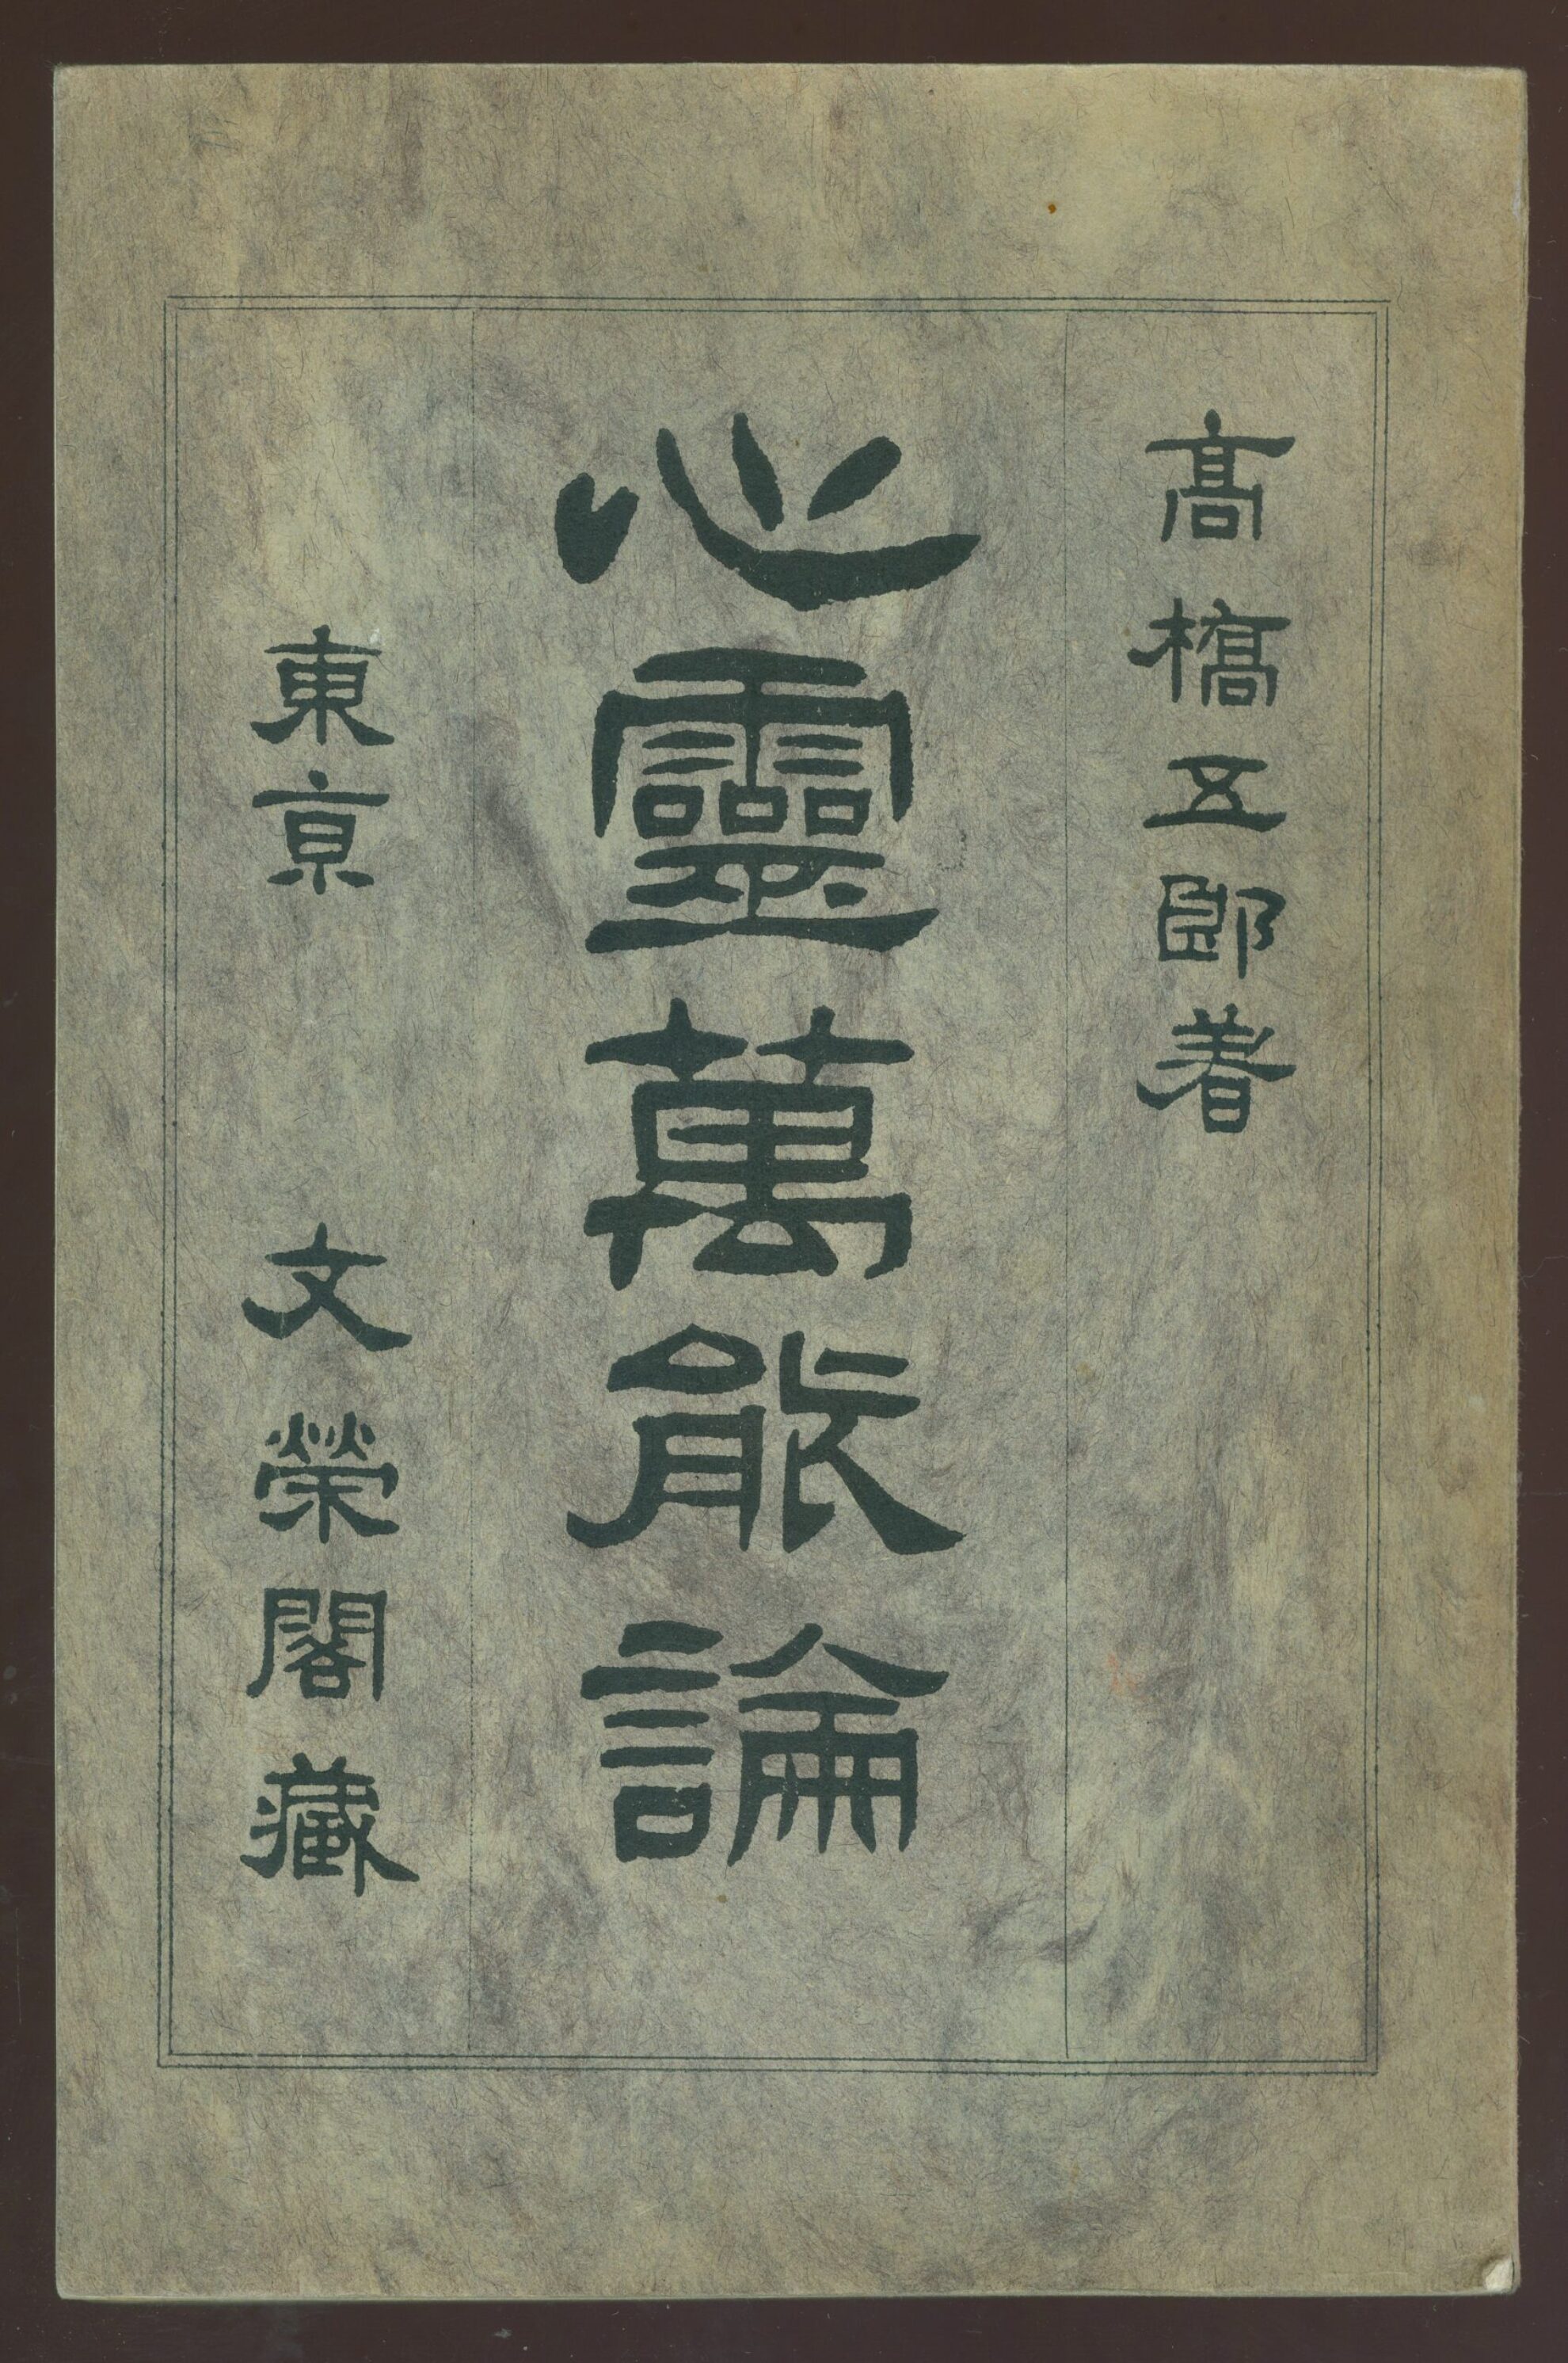 髙橋五郎著
心靈萬能論
東京 文榮閣藏